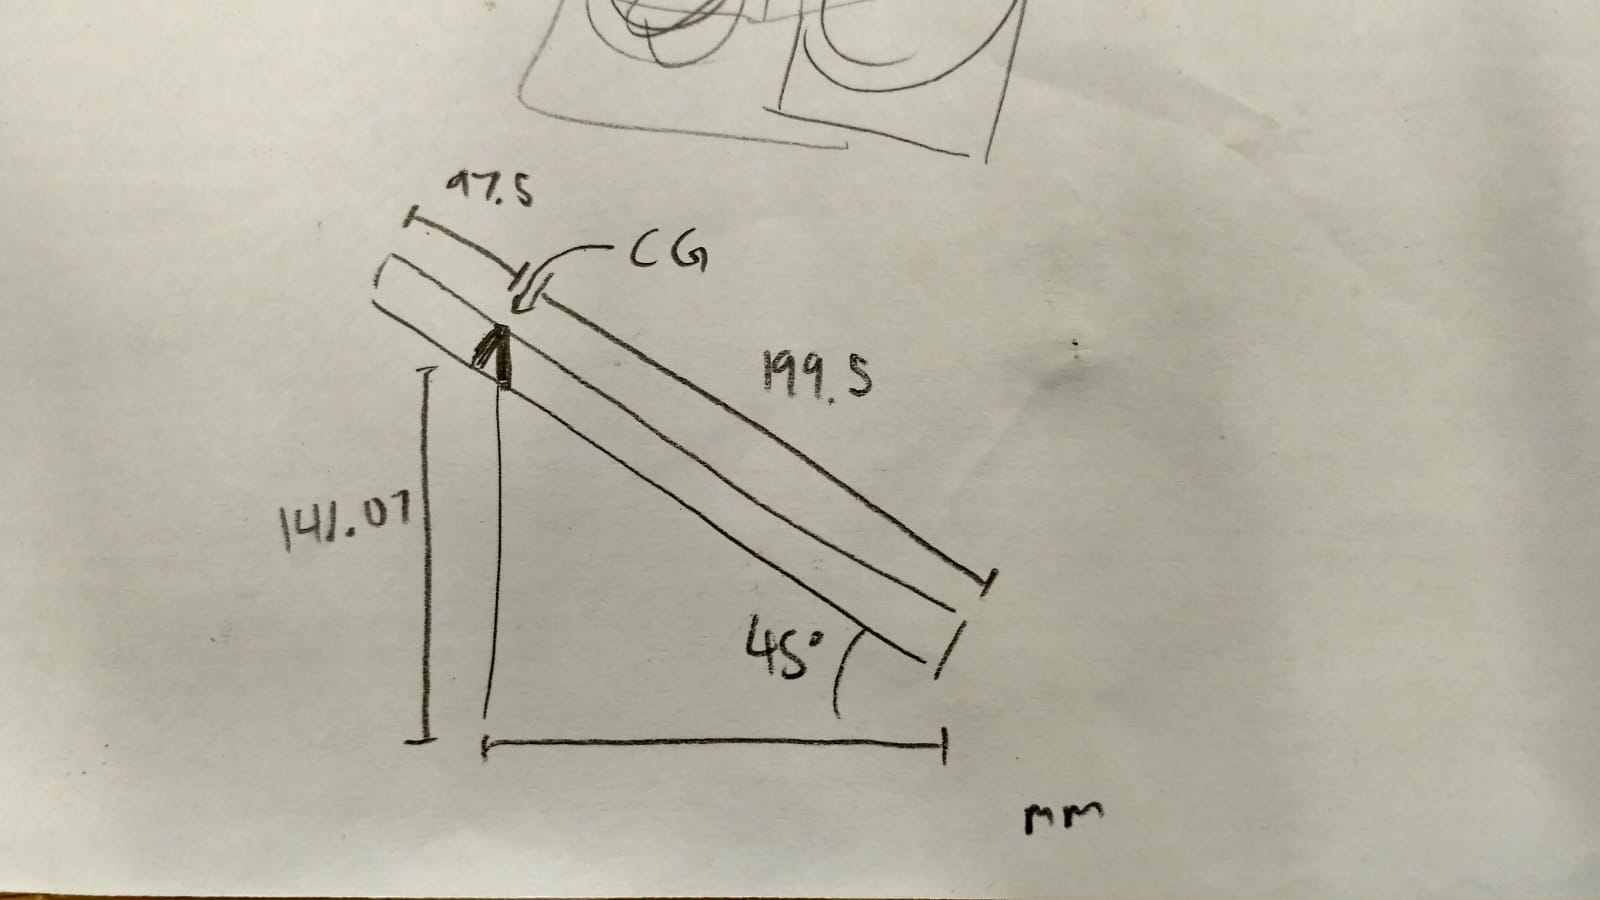 97.5
CG
199.5
141.07
45°
mm